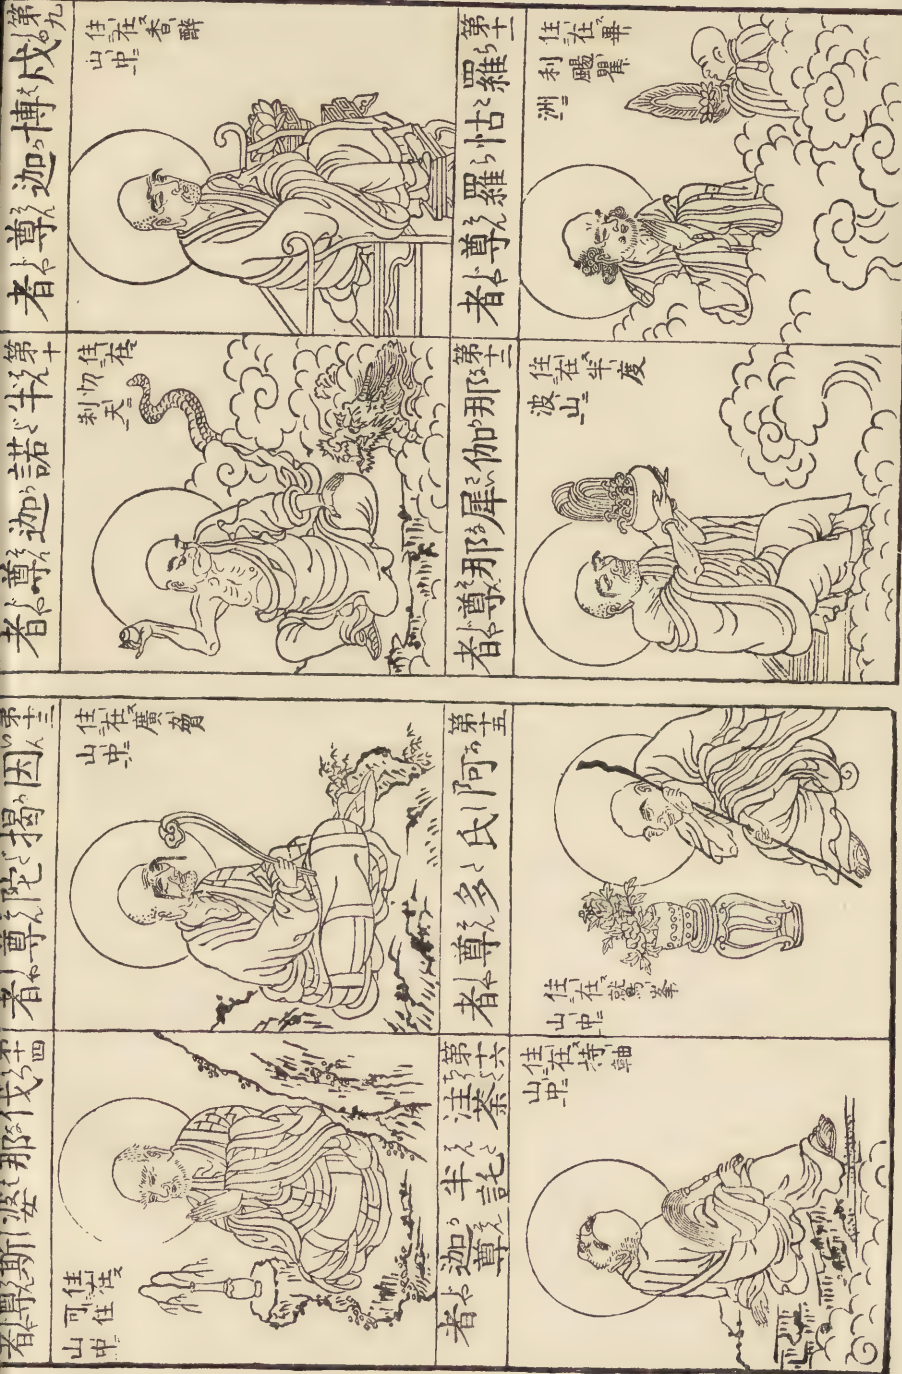 第九
戍博迦尊者
住在香醉
山中
第十
半諾迦尊者
住在忉
利天
第十一
羅怙羅尊者
住在畢
利颺瞿
洲
第十二
那伽犀那尊者
住在半度
波山
第十三
因揭陀尊者
住在廣脅
山中
第十四
伐那婆斯尊者
住在
可住
山中
第十五
阿氏多尊者
住在鷲峯
山中
第十六
注荼
半託
迦尊
者
住在持軸
山中